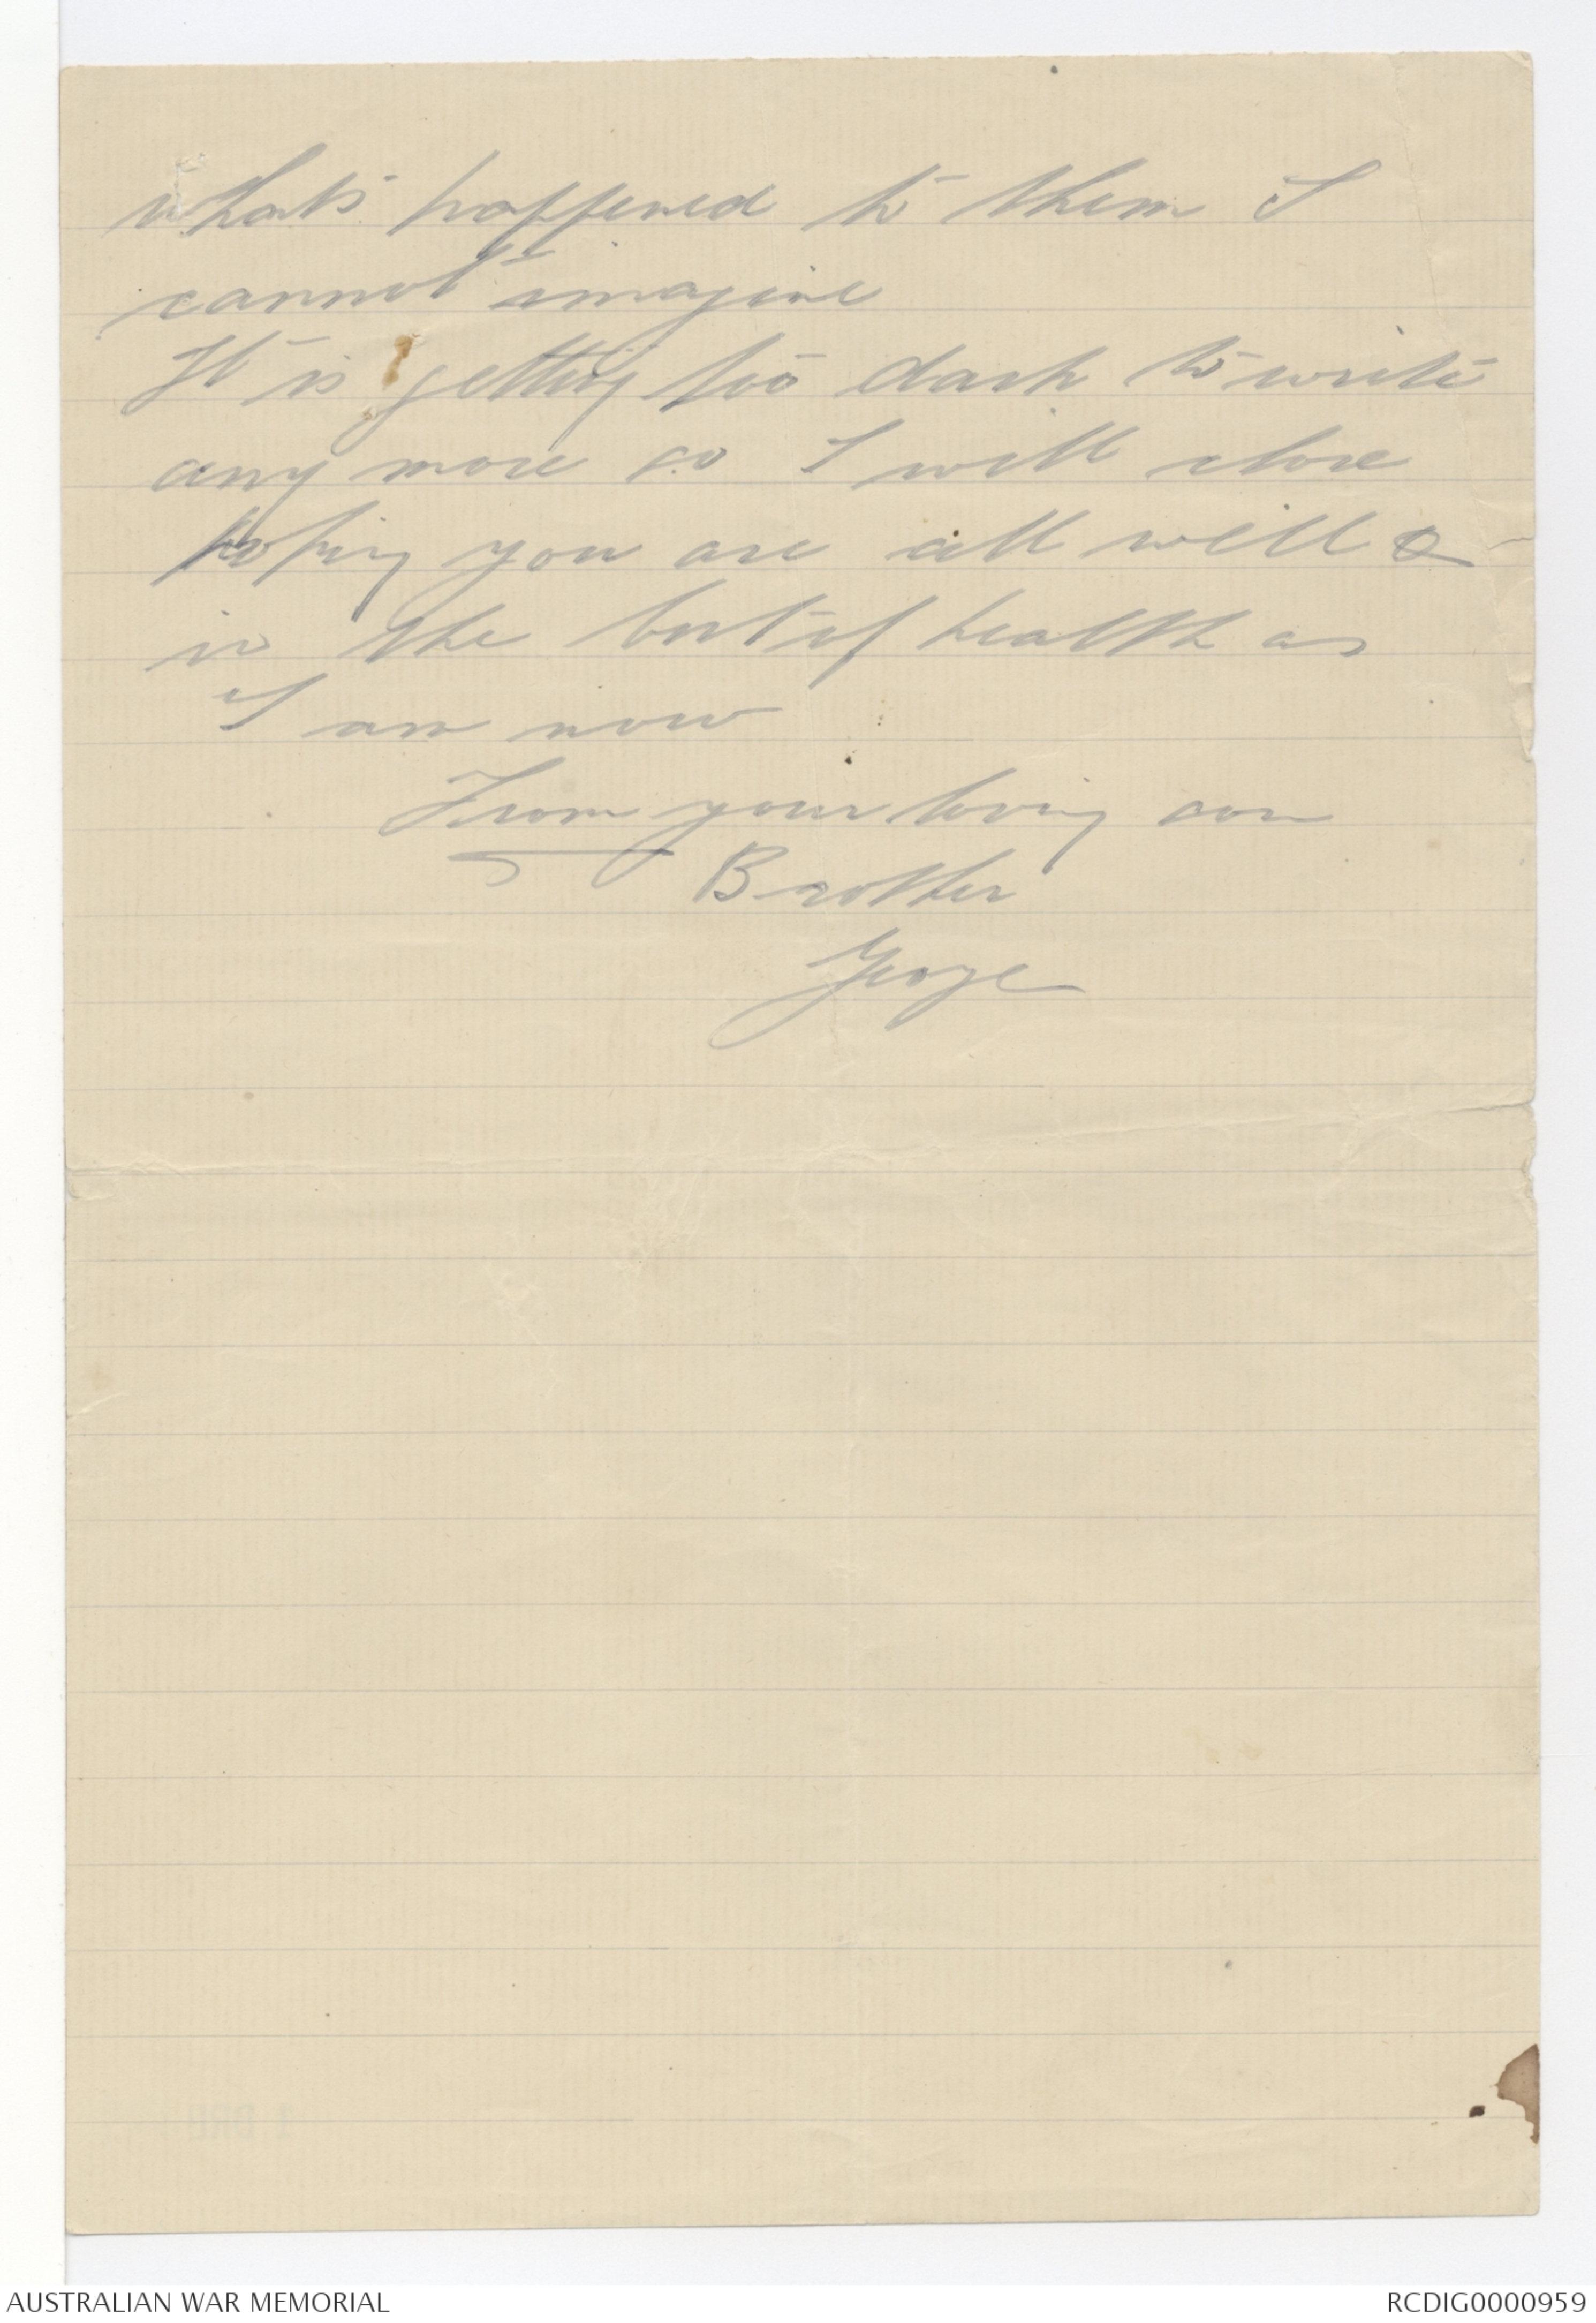 whats happened to them I
cannot imagine
It is getting too dark to write
any more so I will close
hoping you are all well &
in the best of health as
I am now
From your loving son
Brother
George
AUSTRALIAN WAR MEMORIAL
RCDIG0000959